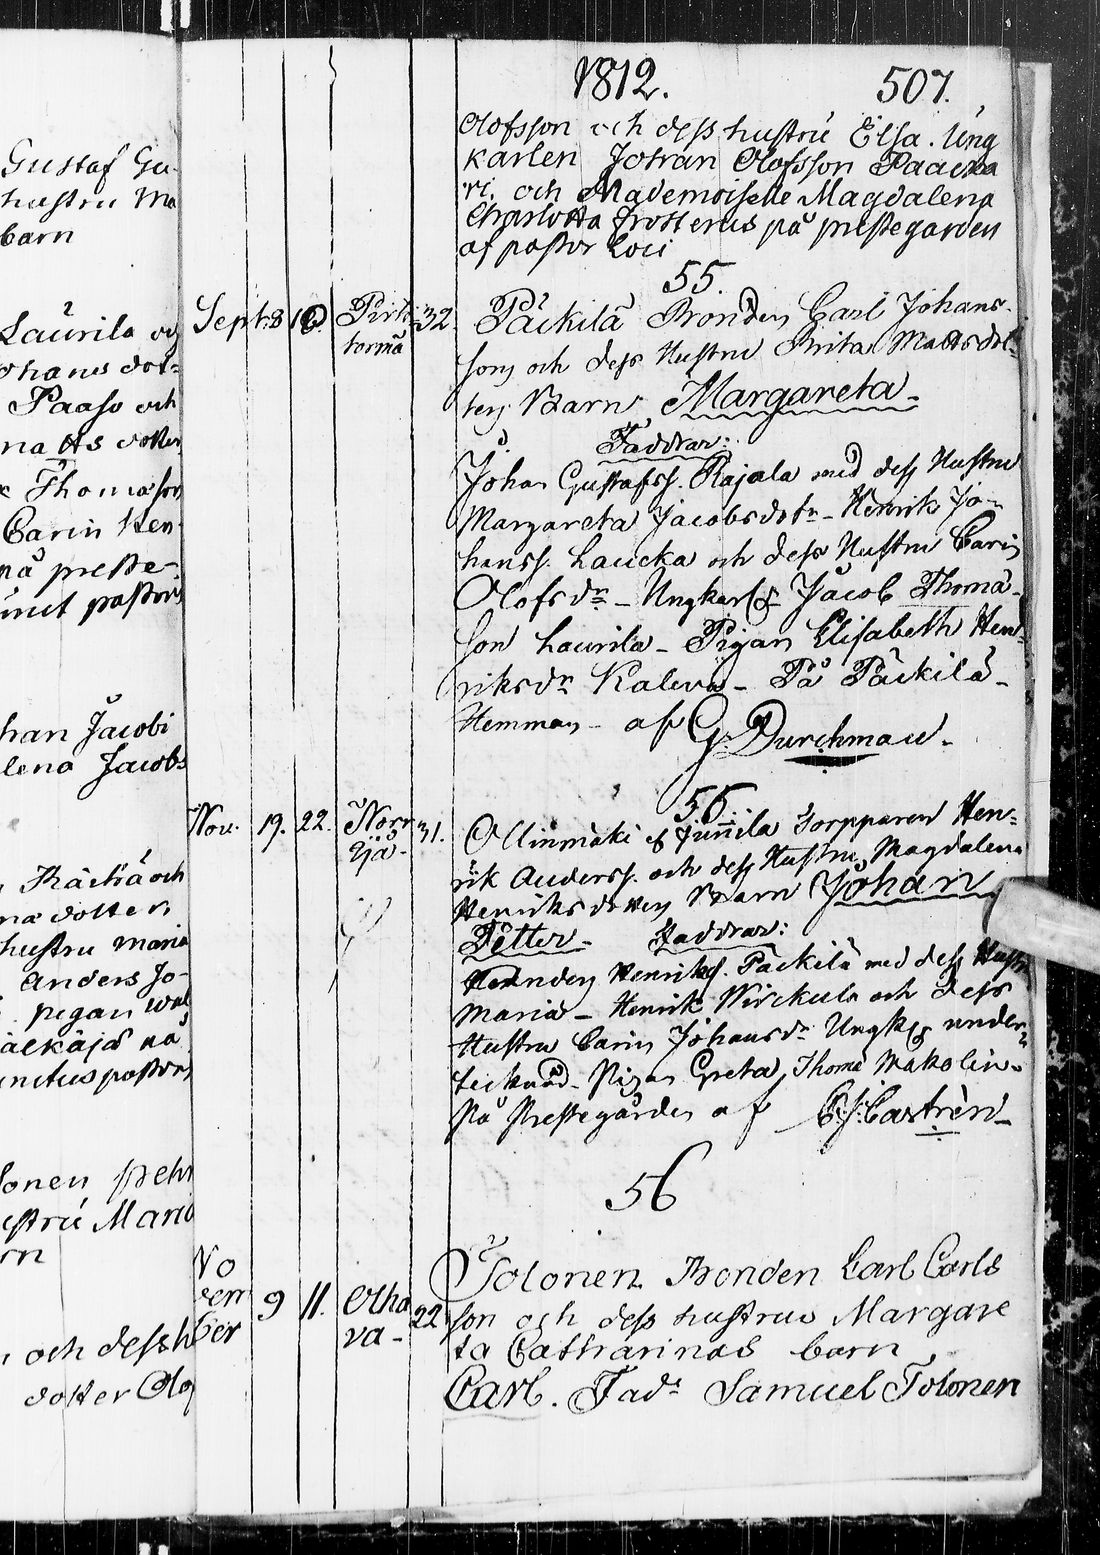 Gustaf Gu-
hustru Ma
barn
Laurila oc
ohans dot=
Paaso och
na Ms dotter
Thomasson
Carin Hen
nå preste-
pastoris
han Jacobi
lena Jacobs
och
na dotter
hustru Maria
Anders Jo-
pigan Wal
nå
pastoris
onen pehr
ustru Maria
rn
och dess h
dotter Olof
1812. 507.
Olofsson och dess hustru Elsa. Ung
karlen Johan Olofsson Paacka
ri, och Mademoiselle Magdalena
Charlotta Frosterus på prestegården
af pastor Loci
55.
Sept. 8 10. Pirt- 32
torma
Päckilä Bonden Carl Johans-
son och dess Hustru Brita Mattsdot-
ter Barn Margareta-
Faddrar:
Johan Gustafss. Rajala med dess Hustru
Margareta Jacobsdotr- Henrik Jo-
hanss. Laucka och dess Hustru Carin
Olofsdr- Ungkarl Jacob Thoma-
son Laurila- Pigan Elisabeth Hen-
riksdr Kaleva- På Päckilä-
Hemman- af G. Durchman-
56.
Nov. 19. 22. Norr 31.
yjä-
Ollinmäki Junnila Torpparen Hen=
rik Anderss. och dess Hustru Magdalena
Henriksdotter Barn Johan
Petter- Faddrar:
Henriks. Päckilä med dess Hustr
Maria- Henrik Wirckula och dess
Hustru Carin Johansdr Ungk. under-
tecknad- Pigan Greta Thoma Makolin-
På Prestegården af E. J. Castrèn-
56
No
vem
ber 9 11. Olha 22
va-
Tolonen Bonden Carl Carls
son och dess hustrus Margare
ta Catharinas barn
Carl. Fadr Samuel Tolonen